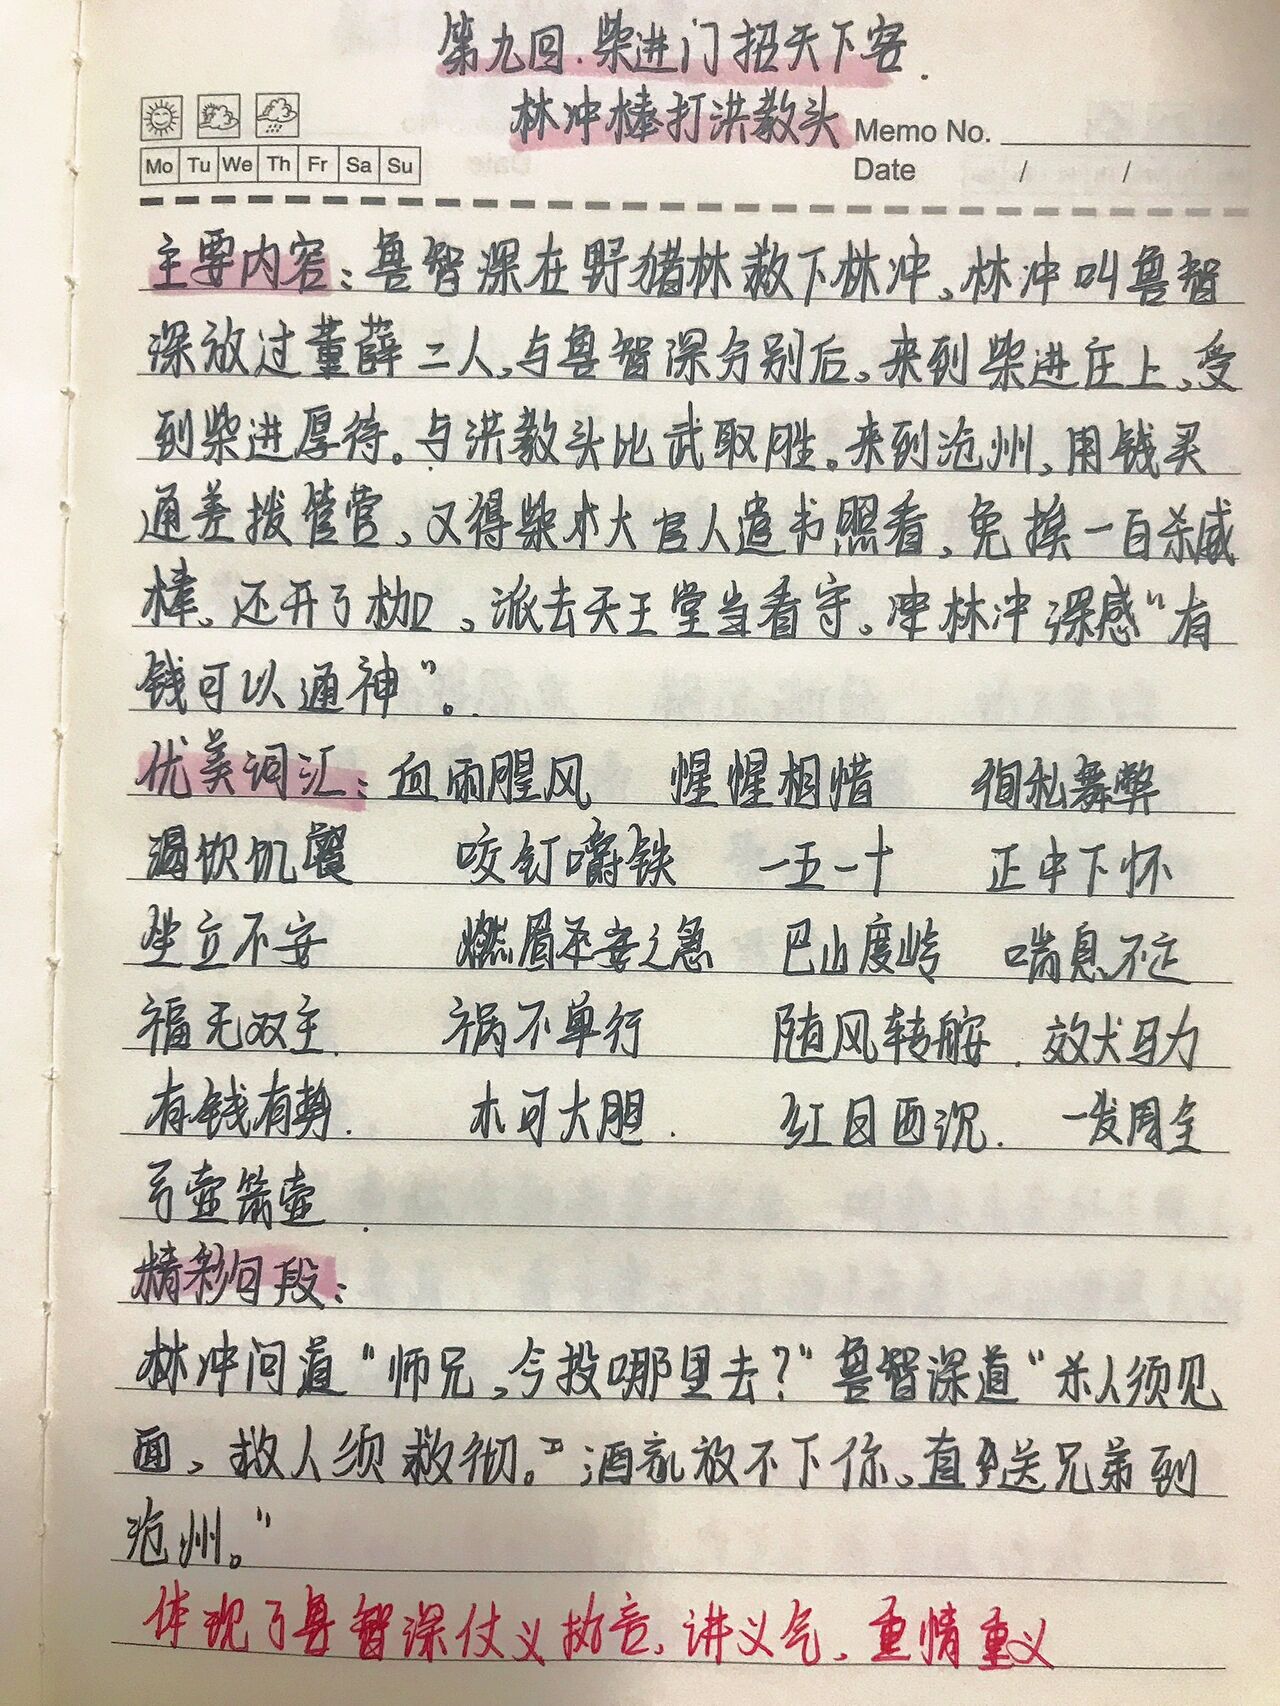 第九回.柴进门招天下客.
林冲棒打洪教头
Memo No.
Mo Tu We Th Fr Sa Su
Date / /
主要内容:鲁智深在野猪林救下林冲、林冲叫鲁智
深放过董薛二人,与鲁智深分别后,来到柴进庄上,受
到柴进厚待。与洪教头比武取胜。来到沧州,用钱买
通差拨管营,又得柴大官人遣书照看,免挨一百杀威
棒、还开了枷,派去天王堂当看守,林冲深感“有
钱可以通神”。
优美词汇:血雨腥风 惺惺相惜 徇私舞弊
渴饮饥餐 咬钉嚼铁 一五一十 正中下怀
坐立不安 燃眉之急 巴山度岭 喘息不定
福无双主. 祸不单行 随风转舵. 效犬马力
有钱有势. 木可大胆. 红日西沉. 一发周全
弓壶箭壶.
精彩句段:
林冲问道“师兄,今投哪里去?”鲁智深道“杀人须见
面、救人须救彻。”洒家放不下你,直送兄弟到
沧州。”
体现了鲁智深仗义执言,讲义气,重情重义